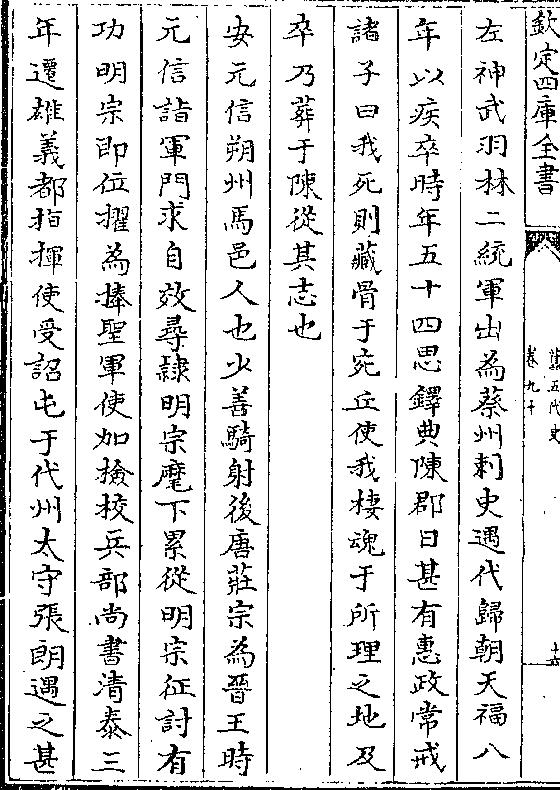 欽定四庫全書
舊五代史
卷九十
左神武羽林二統軍出為蔡州刺史遇代歸朝天福八
年以疾卒時年五十四思鐸典陳郡日甚有惠政常戒
諸子曰我死則藏骨于宛丘使我棲魂于所理之地及
卒乃葬于陳從其志也
安元信朔州馬邑人也少善騎射後唐莊宗為晉王時
元信詣軍門求自效尋隸明宗麾下累從明宗征討有
功明宗即位擢為捧聖軍使加檢校兵部尚書清泰三
年遷雄義都指揮使受詔屯于代州太守張朗遇之甚